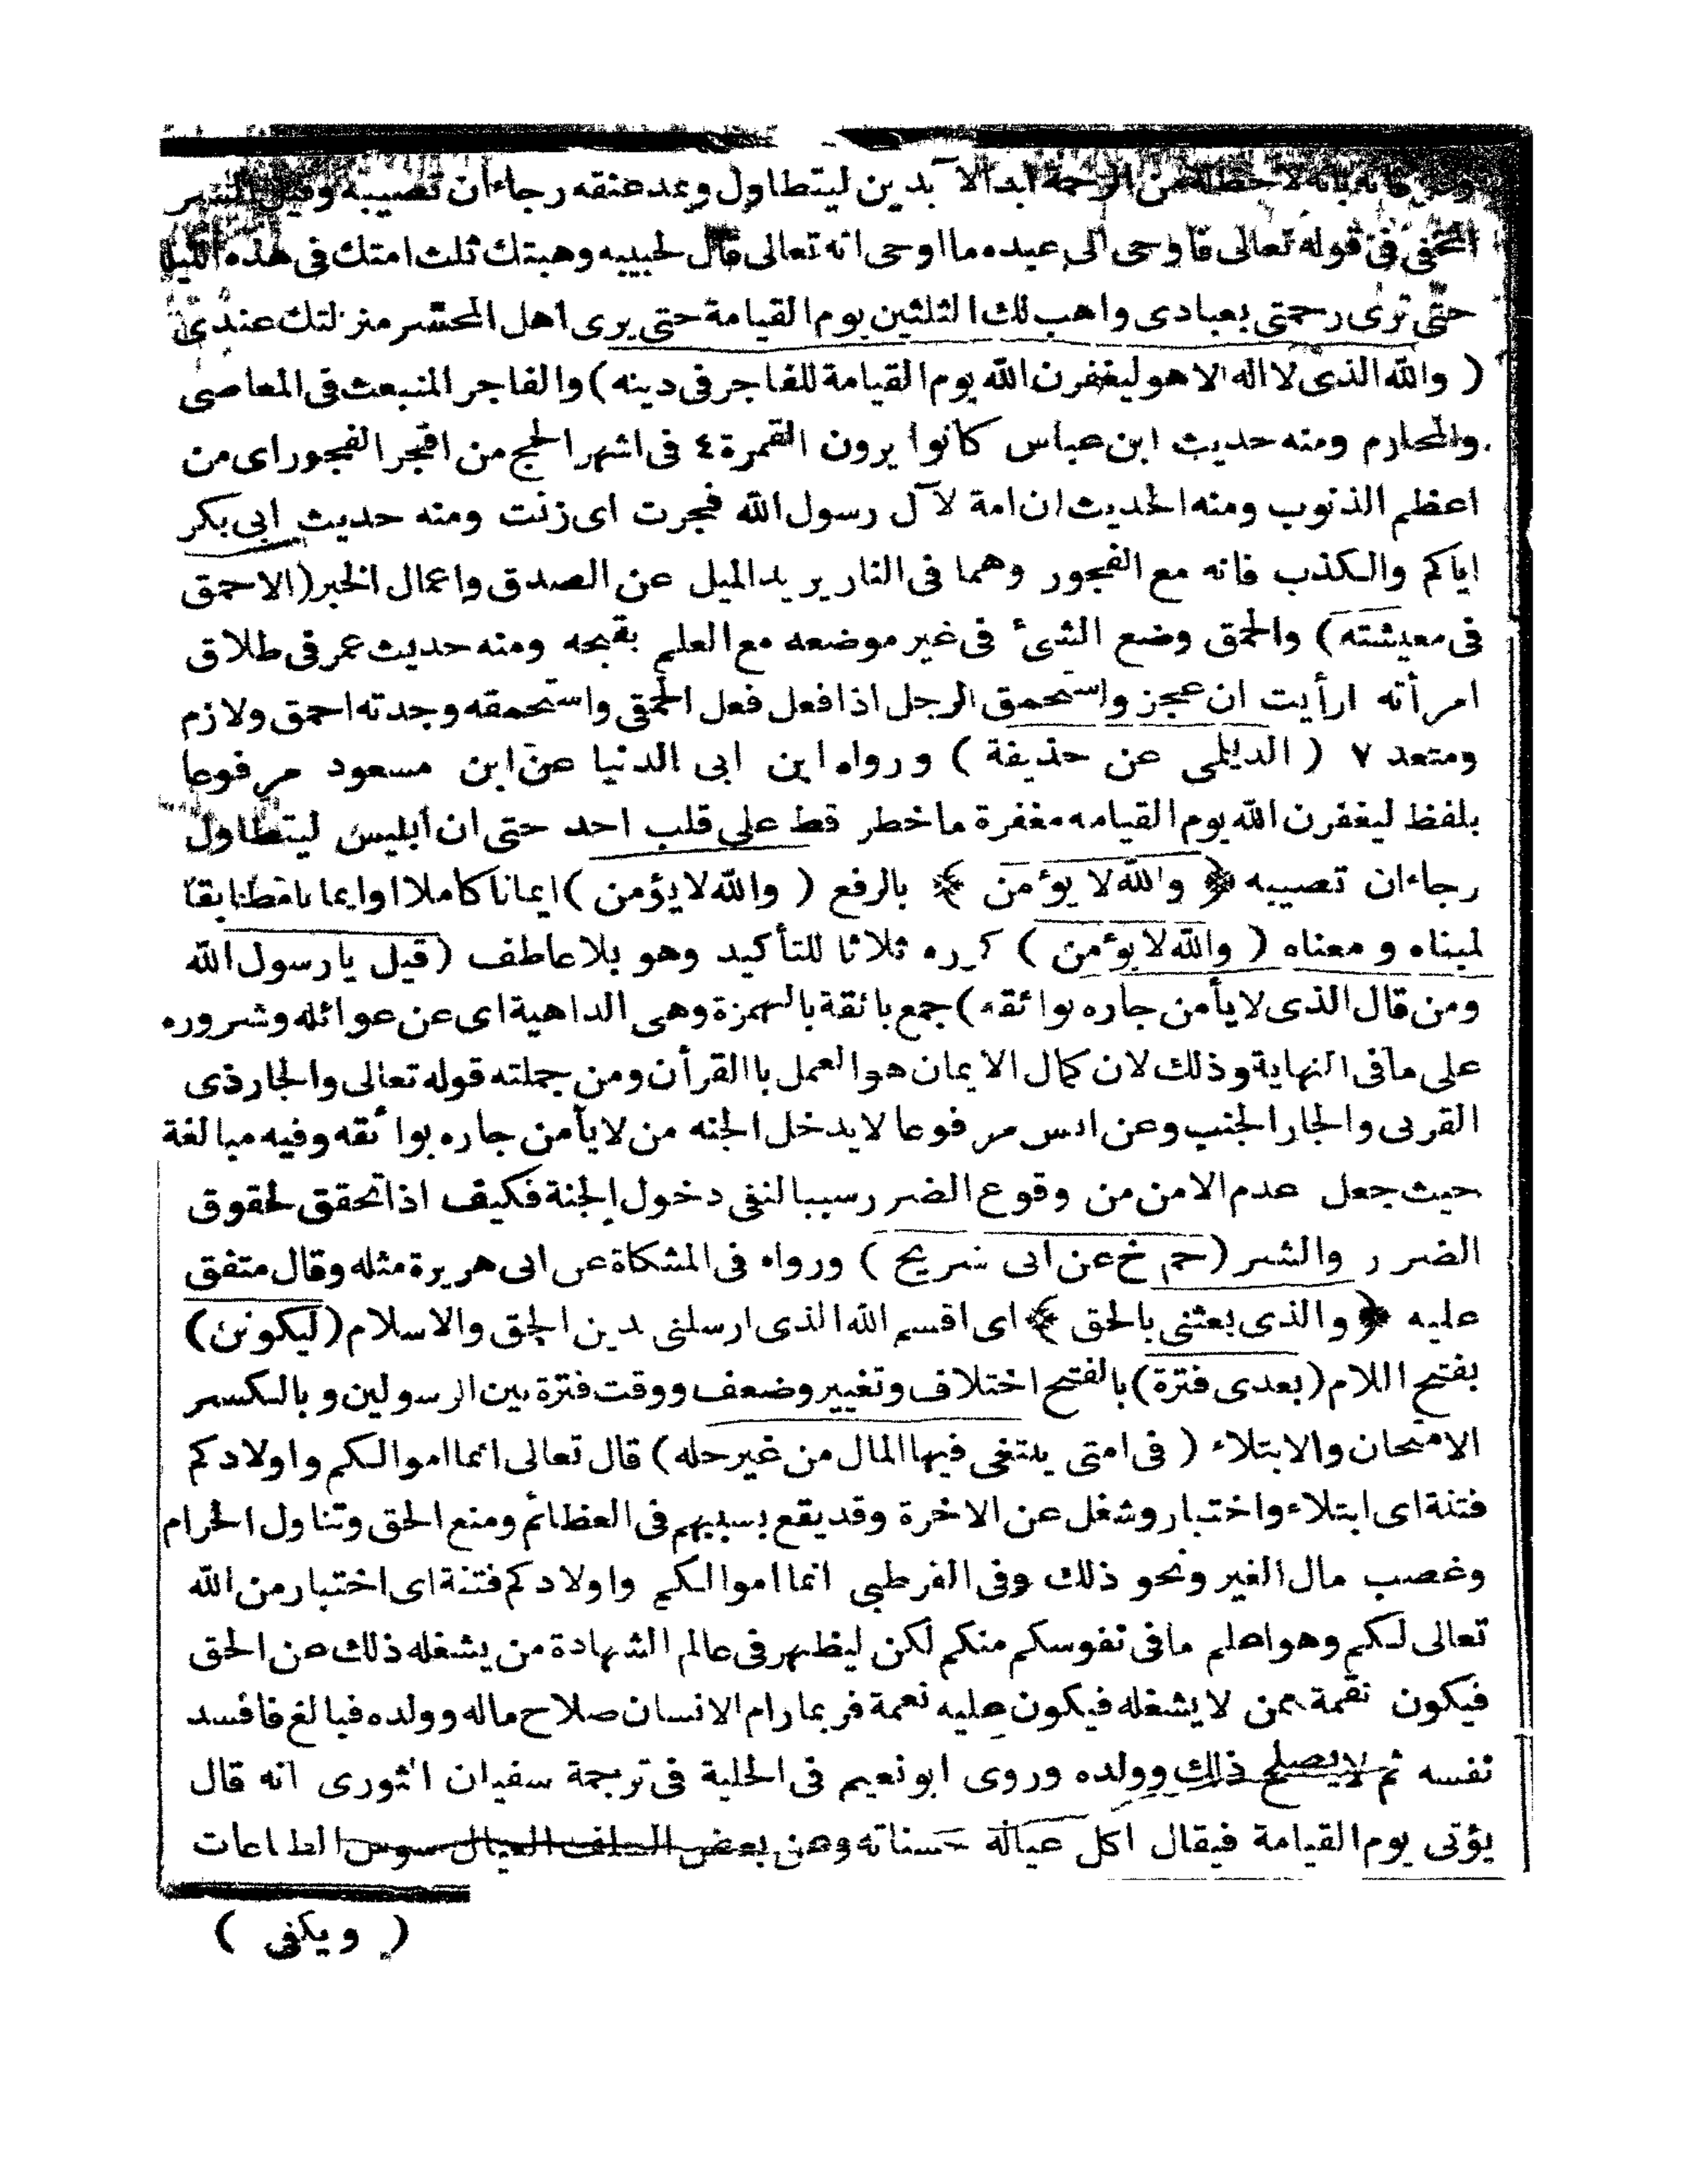 بانه لاحظ له من الرحمة ابد الآبدين ليتطاول ويمد عنقه رجاء أن تصيبه وقيل السر
المخفى فى قوله تعالى فاوحى الى عبده ما اوحى انه تعالى قال لحبيبه وهبتك ثلث امتك فى هذه الليل
حتى ترى رحمتى بعبادى واهب لك الثلثين يوم القيامة حتى يرى اهل المحشر منزلتك عندى
( والله الذى لا اله الا هو ليغفرن الله يوم القيامة للفاجر فى دينه ) والفاجر المنبعث فى المعاصى
والمحارم ومنه حديث ابن عباس كانوا يرون العمرة ٤ فى اشهر الحج من افجر الفجور اى من
اعظم الذنوب ومنه الحديث ان امة لآل رسول الله فجرت اى زنت ومنه حديث ابى بكر
اياكم والكذب فانه مع الفجور وهما فى النار يريد الميل عن الصدق واعمال الخير ( الاحمق
فى معيشته ) والحمق وضع الشئ فى غير موضعه مع العلم بقبحه ومنه حديث عمر فى طلاق
امرأته ارأيت ان عجز واستحمق الرجل اذا فعل فعل الحمقى واستحمقه وجدته احمق ولازم
ومتعد ٧ ( الديلمى عن حذيفة ) ورواه ابن ابى الدنيا عن ابن مسعود مرفوعا
بلفظ ليغفرن الله يوم القيامه مغفرة ما خطر قط على قلب احد حتى ان ابليس ليتطاول
رجاء ان تصيبه ﴿ والله لا يؤمن ﴾ بالرفع ( والله لا يؤمن ) ايمانا كاملا او ايمانا مطابقا
لمبناه و معناه ( والله لا يؤمن ) كرره ثلاثا للتأكيد وهو بلا عاطف ( قيل يا رسول الله
ومن قال الذى لا يأمن جاره بوائقه ) جمع بائقة بالهمزة وهى الداهية اى عن غوائله وشروره
على ما فى النهاية وذلك لان كمال الايمان هو العمل باالقرأن ومن جملته قوله تعالى والجار ذى
القربى والجار الجنب وعن انس مرفوعا لا يدخل الجنه من لا يأمن جاره بوائقه وفيه مبالغة
حيث جعل عدم الامن من وقوع الضرر سببا لنفى دخول الجنة فكيف اذا تحقق لحقوق
الضرر والشر ( حم خ عن ابى شريح ) ورواه فى المشكاة عن ابى هريرة مثله وقال متفق
عليه ﴿ والذى بعثنى بالحق ﴾ اى اقسم الله الذى ارسلنى بدين الحق والاسلام ( ليكونن )
بفتح اللام ( بعدى فترة ) بالفتح اختلاف وتغيير وضعف ووقت فترة بين الرسولين وبالكسر
الامتحان والابتلاء ( فى امتى يبتغى فيها المال من غير حله ) قال تعالى انما اموالكم واولادكم
فتنة اى ابتلاء واختبار وشغل عن الاخرة وقد يقع بسببهم فى العظائم ومنع الحق وتناول الحرام
وغصب مال الغير ونحو ذلك وفى القرطبى انما اموالكم واولادكم فتنة اى اختبار من الله
تعالى لكم وهو اعلم ما فى نفوسكم منكم لكن ليظهر فى عالم الشهادة من يشغله ذلك عن الحق
فيكون نقمة ممن لا يشغله فيكون عليه نعمة فربما رام الانسان صلاح ماله وولده فبالغ فافسد
نفسه ثم لا يصلح ذلك وولده وروى ابو نعيم فى الحلية فى ترجمة سفيان الثورى انه قال
يؤتى يوم القيامة فيقال اكل عياله حسناته وعن بعض السلف العيال سوس الطاعات
( ويكفى )